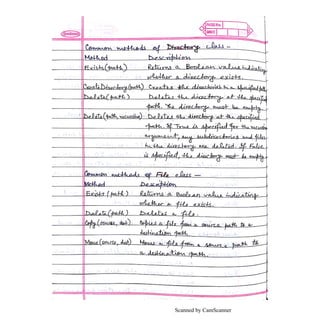 PAGE No.
DATE
Common methods of Directory class -
Method Description
Exists (path) Returns a Boolean value indicating
whether a directory exists.
CreateDirectory(path) Creates the directories in a specified path.
Delete (path) Deletes the directory at the specified
path. The directory must be empty.
Delete (path, recursive) Deletes the directory at the specified
path. If True is specified for the recursive
argument, any subdirectories and files
in the directory are deleted. If False
is specified, the directory must be empty.
Common methods of File class -
Method Description
Exists (path) Returns a Boolean value indicating
whether a file exists.
Delete (path) Deletes a file.
Copy (source, dest) Copies a file from a source path to a
destination path
Move (source, dest) Moves a file from a source path to
a destination path.
Scanned by CamScanner